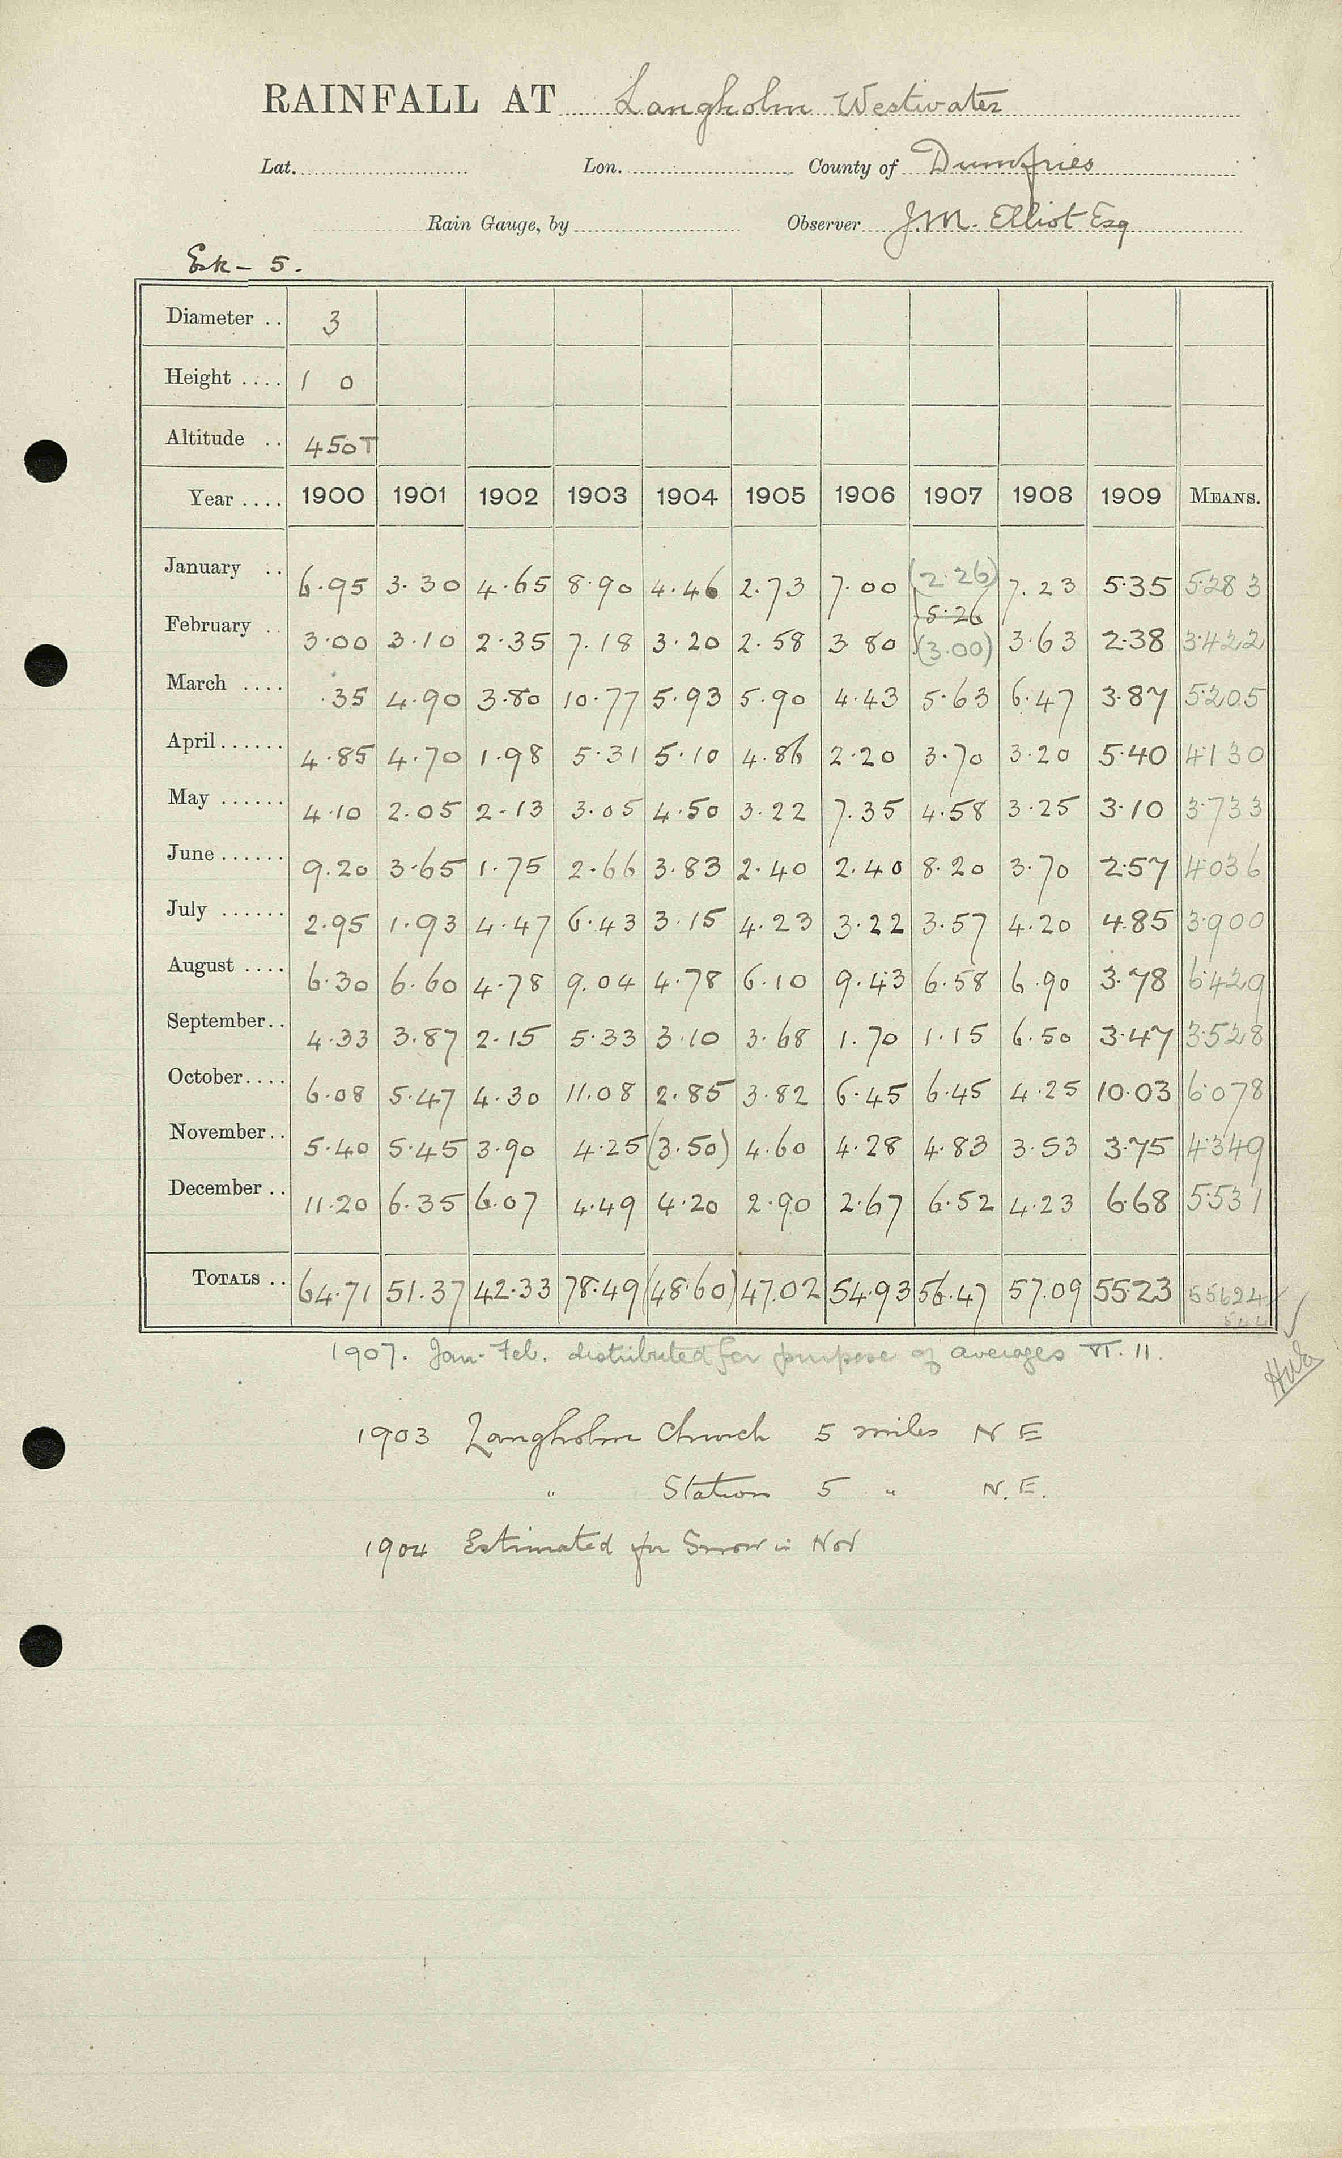 RAINFALL AT Langholm Westwater
Lat. Lon. County of Dumfries
Rain Gauge, by Observer J.M. Elliot Esq
Esk - 5.
Diameter .. 3
Height .... 1 0
Altitude .. 450T
Year .... 1900 1901 1902 1903 1904 1905 1906 1907 1908 1909 MEANS.
January .. 6.95 3.30 4.65 8.90 4.46 2.73 7.00 (2.26) 7.23 5.35 5.283
5.26
February .. 3.00 3.10 2.35 7.18 3.20 2.58 3.80 (3.00) 3.63 2.38 3.422
March .... .35 4.90 3.80 10.77 5.93 5.90 4.43 5.63 6.47 3.87 5.205
April...... 4.85 4.70 1.98 5.31 5.10 4.86 2.20 3.70 3.20 5.40 4.130
May ...... 4.10 2.05 2.13 3.05 4.50 3.22 7.35 4.58 3.25 3.10 3.733
June ...... 9.20 3.65 1.75 2.66 3.83 2.40 2.40 8.20 3.70 2.57 4.036
July ...... 2.95 1.93 4.47 6.43 3.15 4.23 3.22 3.57 4.20 4.85 3.900
August .... 6.30 6.60 4.78 9.04 4.78 6.10 9.43 6.58 6.90 3.78 6.429
September.. 4.33 3.87 2.15 5.33 3.10 3.68 1.70 1.15 6.50 3.47 3.528
October.... 6.08 5.47 4.30 11.08 2.85 3.82 6.45 6.45 4.25 10.03 6.078
November.. 5.40 5.45 3.90 4.25 (3.50) 4.60 4.28 4.83 3.53 3.75 4.349
December .. 11.20 6.35 6.07 4.49 4.20 2.90 2.67 6.52 4.23 6.68 5.531
TOTALS .. 64.71 51.37 42.33 78.49 (48.60) 47.02 54.93 56.47 57.09 55.23 55624
1907. Jan-Feb. distributed for purpose of averages VI. 11.
1903 Langholm Church 5 miles N E
" Station 5 " N.E.
1904 Estimated for Snow in Nov